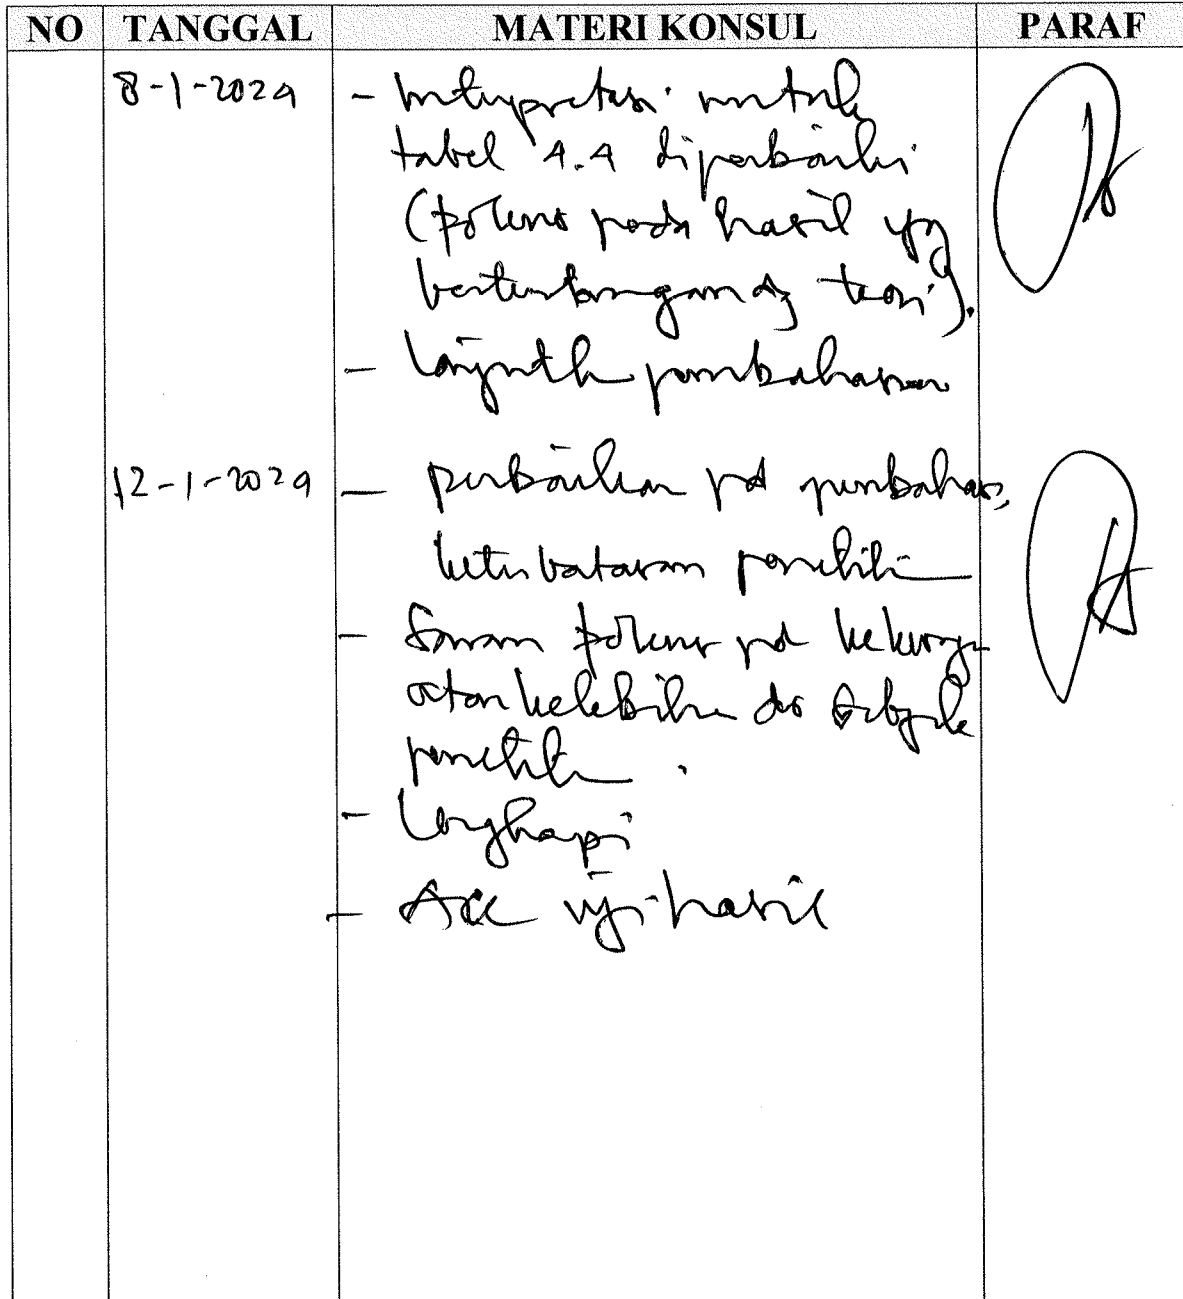 NO TANGGAL MATERI KONSUL PARAF
8-1-2024 - Interpretasi untuk
tabel 4.4 diperbaiki
(fokus pada hasil yg
bertentangan dg teori).
- Lanjutk pembahasan
12-1-2024 - perbaikan pd pembahas,
keterbatasan peneliti
- Saran fokus pd kekurg-
atau kelebih dr subyek
peneliti.
- Lengkapi
- Acc uji hasil